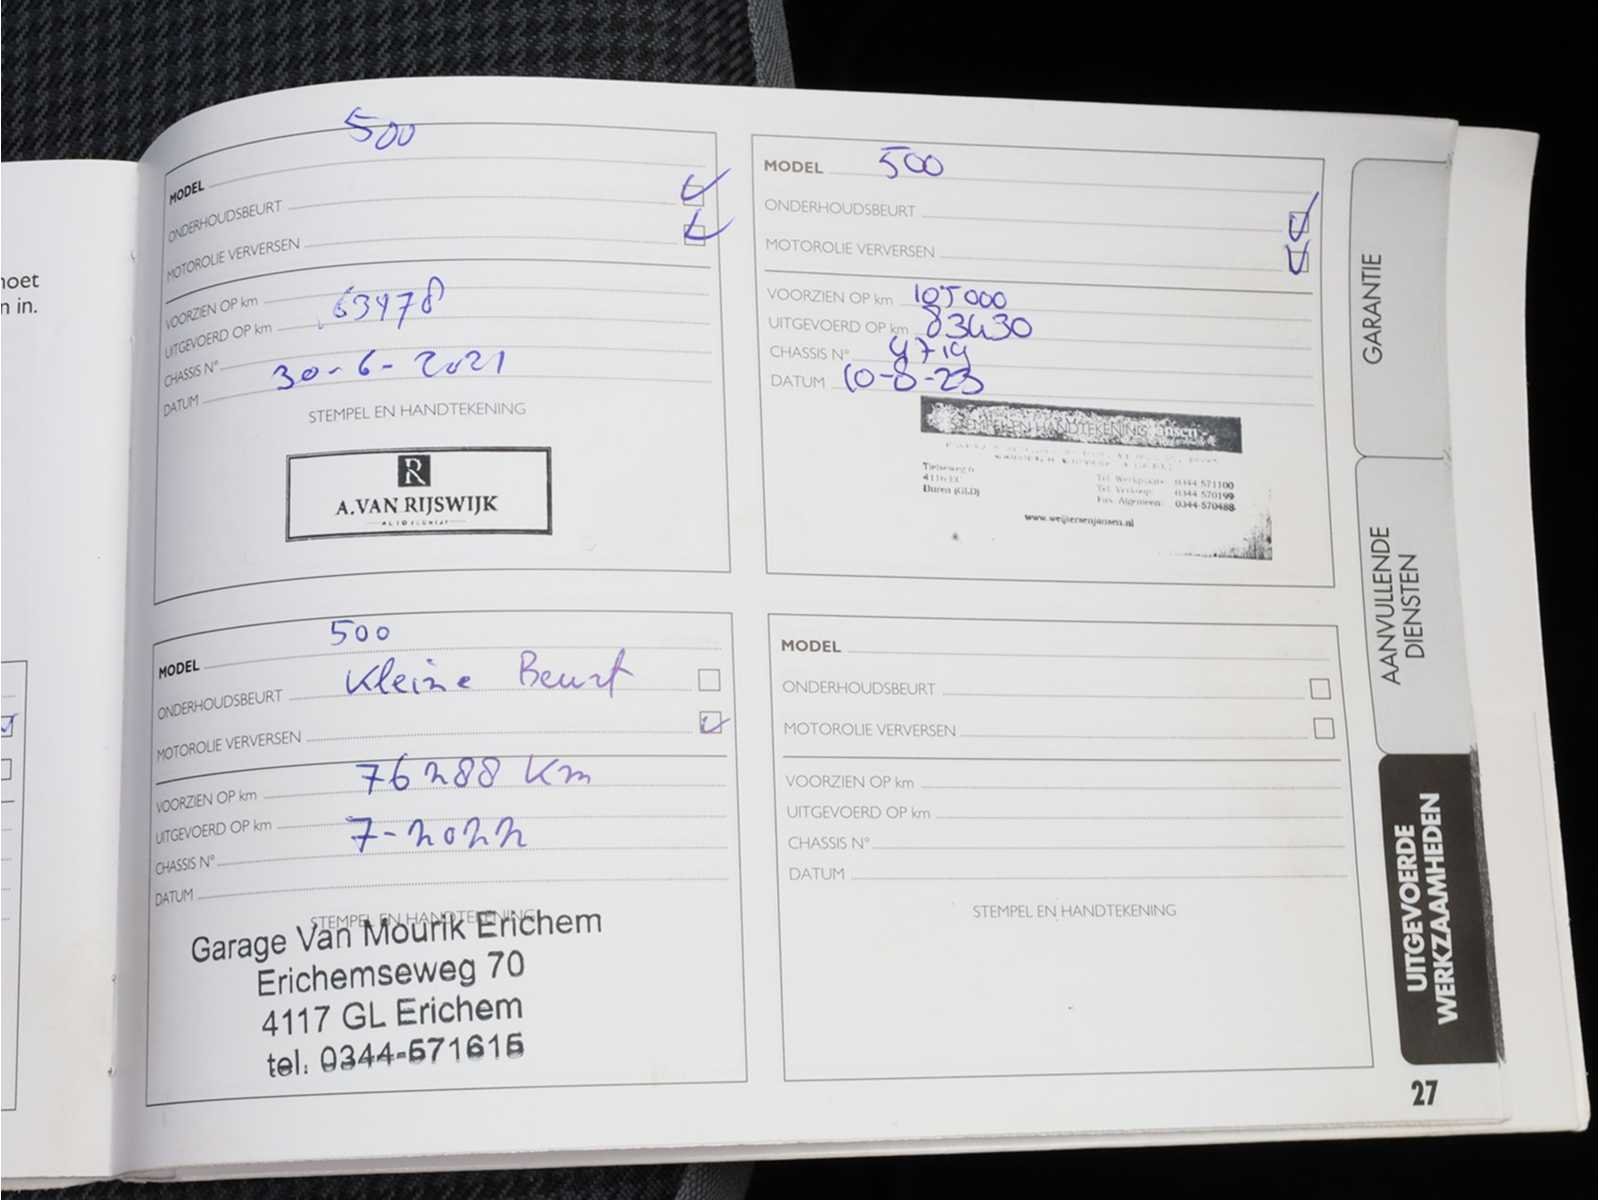 noet
n in.
500
MODEL
ONDERHOUDSBEURT
MOTOROLIE VERVERSEN
VOORZIEN OP km
63478
UITGEVOERD OP km
CHASSIS N°
30-6-2021
DATUM
STEMPEL EN HANDTEKENING
R
A.VAN RIJSWIJK
MODEL 500
ONDERHOUDSBEURT
MOTOROLIE VERVERSEN
VOORZIEN OP km 105000
UITGEVOERD OP km 83430
CHASSIS N° 4719
DATUM 10-8-23
STEMPEL EN HANDTEKENING Jansen
Tielseweg 6
4116 EC
Buren (GLD)
Tel. Werkplaats: 0344-571100
Tel. Verkoop: 0344-570199
Fax. Algemeen: 0344-570488
www.weijersenjansen.nl
500
MODEL
ONDERHOUDSBEURT Kleine Beurt
MOTOROLIE VERVERSEN
76288 km
VOORZIEN OP km
UITGEVOERD OP km 7-2022
CHASSIS N°
DATUM
STEMPEL EN HANDTEKENING
Garage Van Mourik Erichem
Erichemseweg 70
4117 GL Erichem
tel. 0344-571615
MODEL
ONDERHOUDSBEURT
MOTOROLIE VERVERSEN
VOORZIEN OP km
UITGEVOERD OP km
CHASSIS N°
DATUM
STEMPEL EN HANDTEKENING
GARANTIE
AANVULLENDE
DIENSTEN
UITGEVOERDE
WERKZAAMHEDEN
27